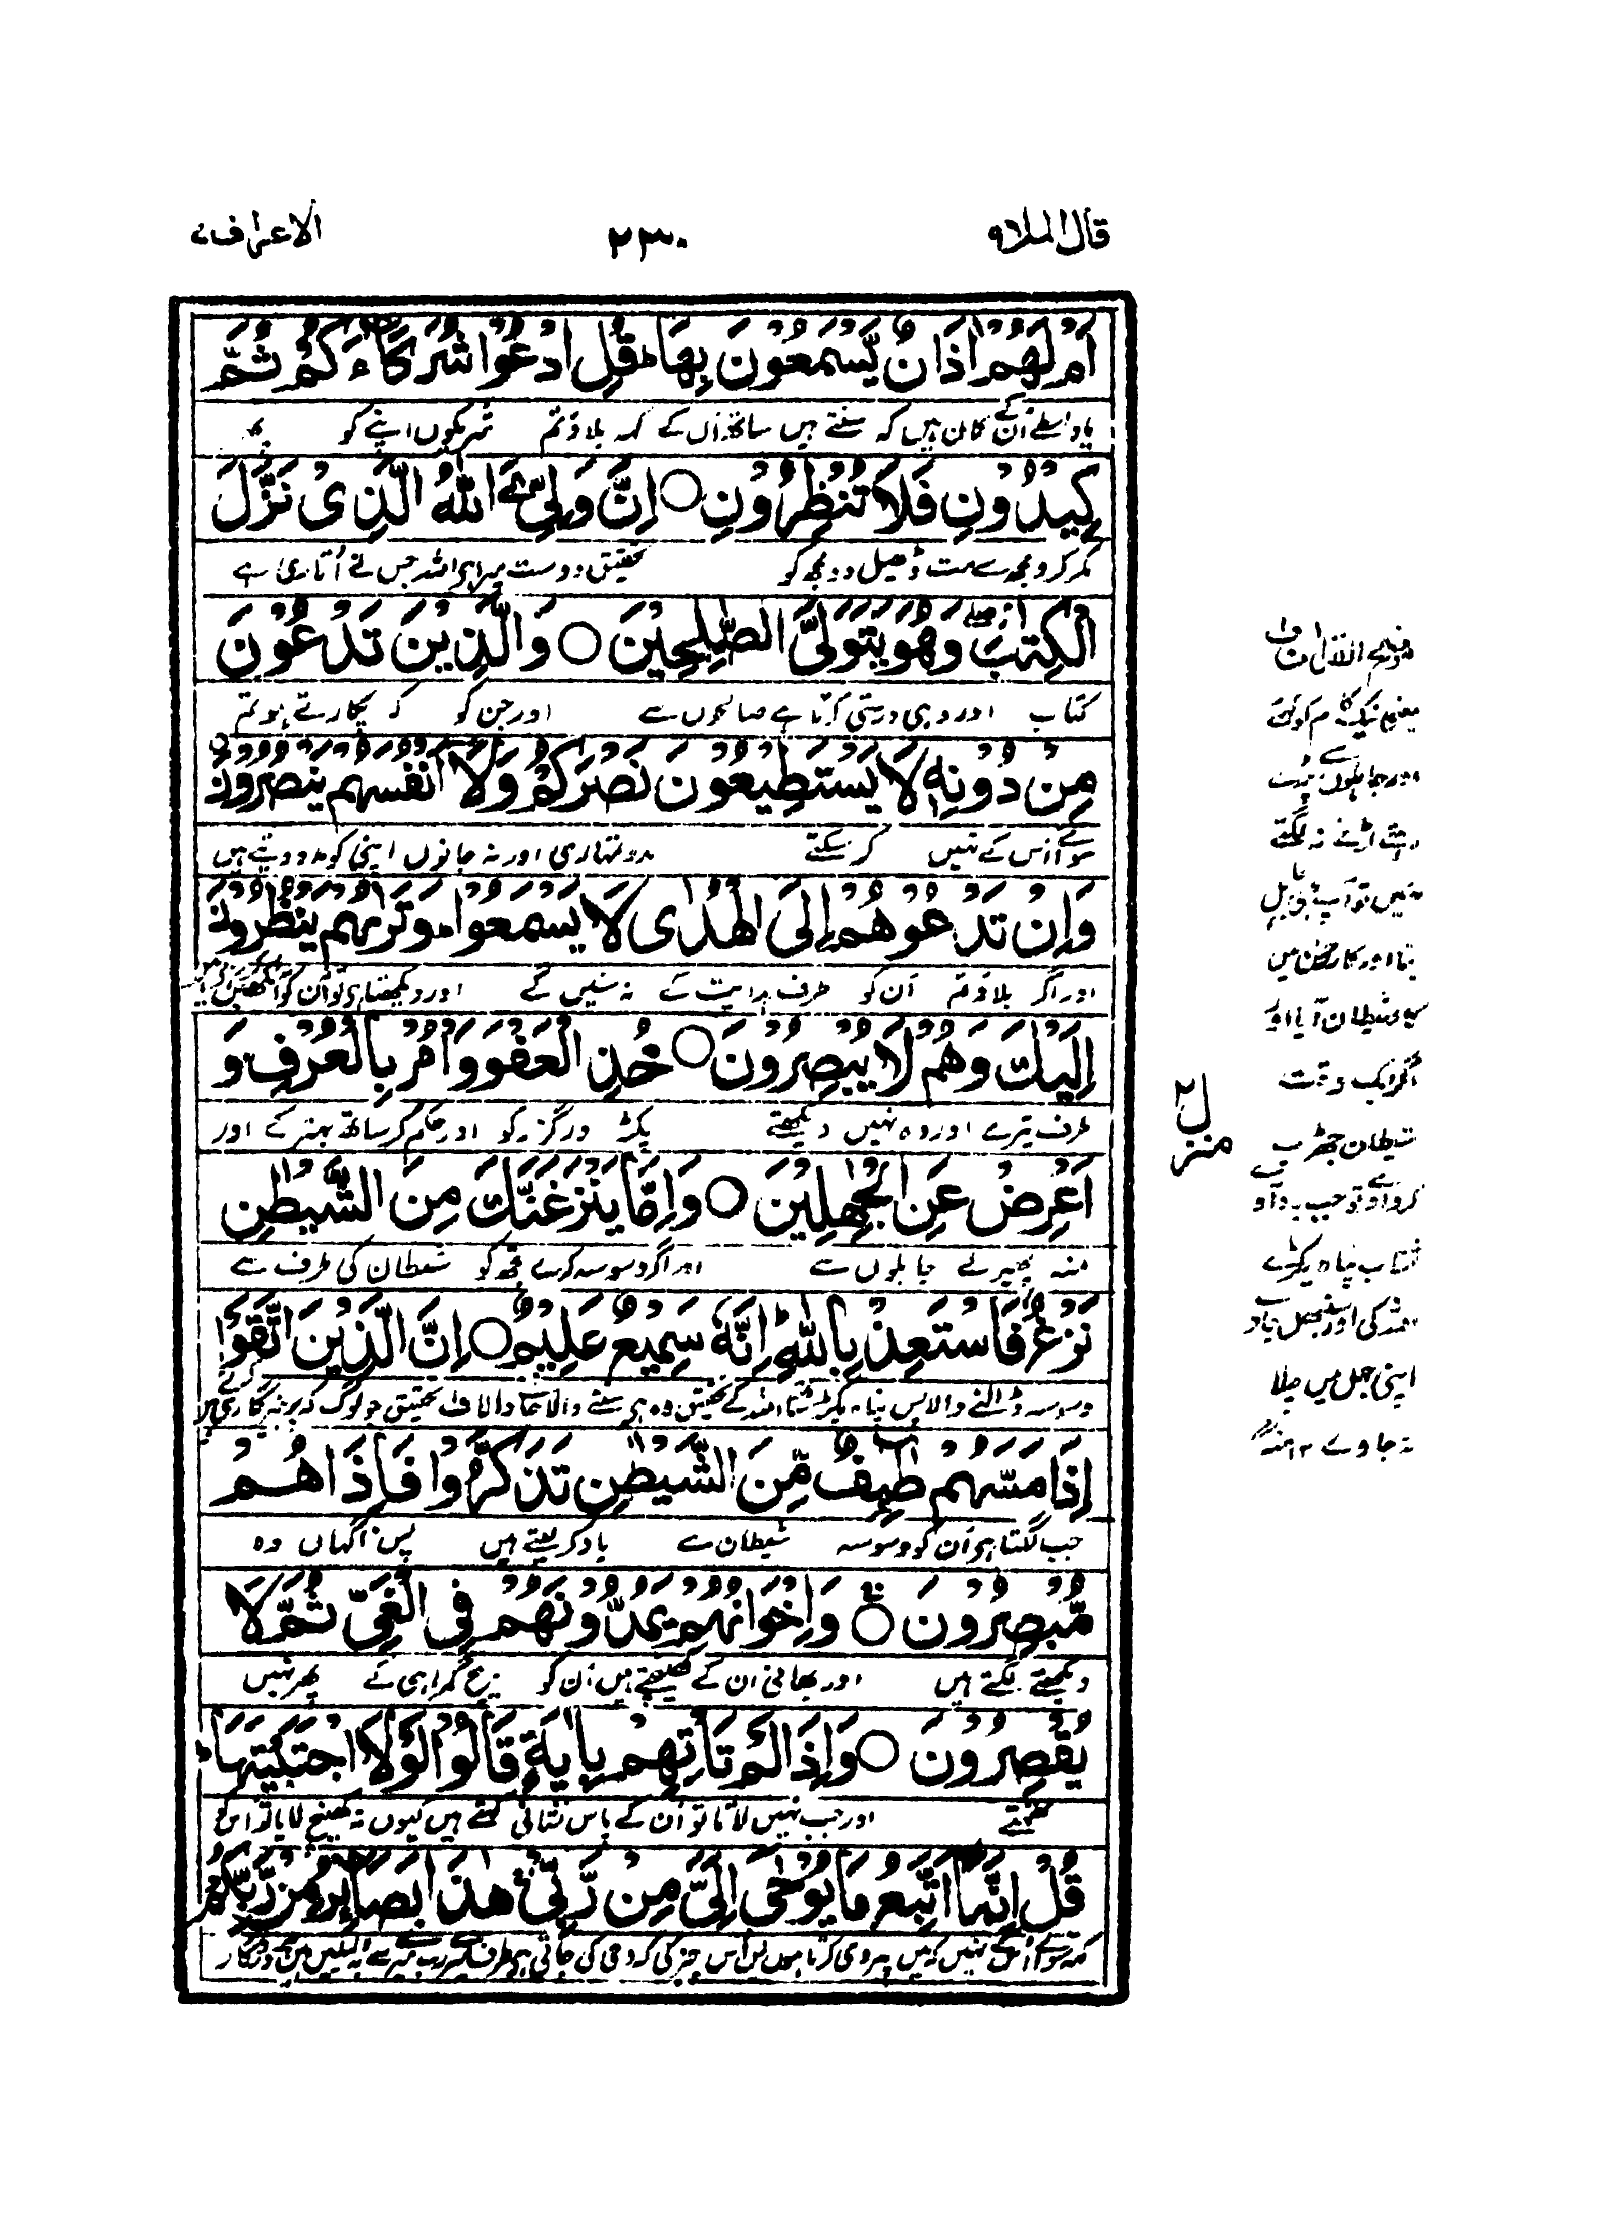 قال الملا ۹
۲۳۰
الاعراف ۷
اَمْ لَهُمْ اٰذَانٌ يَّسْمَعُوْنَ بِهَا ؕ قُلِ ادْعُوْا شُرَكَآءَكُمْ ثُمَّ
یا واسطے اُن کے کان ہیں کہ سنتے ہیں ساتھ اُن کے کہہ بلاؤ تم شریکوں اپنے کو پھر
كِيْدُوْنِ فَلَا تُنْظِرُوْنِ ○ اِنَّ وَلِيِّ ۦَ اللّٰهُ الَّذِيْ نَزَّلَ
مکر کرو مجھ سے مت ڈھیل دو مجھ کو تحقیق دوست میرا ہی اللہ جس نے اُتاری ہے
الْكِتٰبَ ۖ وَهُوَ يَتَوَلَّى الصّٰلِحِيْنَ ○ وَالَّذِيْنَ تَدْعُوْنَ
کتاب اور وہی دوستی کرتا ہے صالحوں سے اور جن کو کہ پکارتے ہو تم
مِنْ دُوْنِهٖ لَا يَسْتَطِيْعُوْنَ نَصْرَكُمْ وَلَآ اَنْفُسَهُمْ يَنْصُرُوْنَ
سوائے اس کے نہیں کر سکتے مدد تمہاری اور نہ جانوں اپنی کو مدد دیتے ہیں
وَاِنْ تَدْعُوْهُمْ اِلَى الْهُدٰى لَا يَسْمَعُوْا ؕ وَتَرٰىهُمْ يَنْظُرُوْنَ
اور اگر بلاؤ تم اُن کو طرف ہدایت کے نہ سنیں گے اور دیکھتا ہی تو اُن کو
اِلَيْكَ وَهُمْ لَا يُبْصِرُوْنَ ○ خُذِ الْعَفْوَ وَاْمُرْ بِالْعُرْفِ وَ
طرف تیرے اور وہ نہیں دیکھتے پکڑ درگزر کو اور حکم کر ساتھ بہتر کے اور
اَعْرِضْ عَنِ الْجٰهِلِيْنَ ○ وَاِمَّا يَنْزَغَنَّكَ مِنَ الشَّيْطٰنِ
منہ پھیر لے جاہلوں سے اور اگر وسوسہ کرے تجھ کو شیطان کی طرف سے
نَزْغٌ فَاسْتَعِذْ بِاللّٰهِ ؕ اِنَّهٗ سَمِيْعٌ عَلِيْمٌ ○ اِنَّ الَّذِيْنَ اتَّقَوْا
وسوسہ ڈالنے والا پس پناہ پکڑ ساتھ اللہ کے تحقیق وہ ہی سننے والا جاننے والا ف تحقیق جو لوگ کہ پرہیزگاری کرتے ہیں
اِذَا مَسَّهُمْ طٰٓئِفٌ مِّنَ الشَّيْطٰنِ تَذَكَّرُوْا فَاِذَا هُمْ
جب لگتا ہی اُن کو وسوسہ شیطان سے یاد کر لیتے ہیں پس ناگہاں وہ
مُّبْصِرُوْنَ ○ وَاِخْوَانُهُمْ يَمُدُّوْنَهُمْ فِي الْغَيِّ ثُمَّ لَا
دیکھنے لگتے ہیں اور بھائی ان کے کھینچتے ہیں اُن کو بیچ گمراہی کے پھر نہیں
يُقْصِرُوْنَ ○ وَاِذَا لَمْ تَاْتِهِمْ بِاٰيَةٍ قَالُوْا لَوْلَا اجْتَبَيْتَهَا ؕ
تھمتے اور جب نہیں لاتا تو اُن کے پاس نشانی کہتے ہیں کیوں نہ کھینچ لایا تو اس کو
قُلْ اِنَّمَآ اَتَّبِعُ مَا يُوْحٰٓى اِلَيَّ مِنْ رَّبِّيْ ۚ هٰذَا بَصَآئِرُ مِنْ رَّبِّكُمْ
کہہ سوائے اسکے نہیں کہ میں پیروی کرتا ہوں اس چیز کی کہ وحی کی جاتی ہی طرف میرے رب میرے سے یہ دلیلیں ہیں
معلوم نیک کام کو کہئے
اور جاہلوں سے
نہیں تو آپ بھی
بنا اور کار رحمٰن میں
شیطان آیا اور
اگر ایک وقت
شیطان چھڑپ
شتاب پناہ پکڑے
اپنی جہل میں چلا
نہ جاوے ۱۲ منہ
منزل ۲